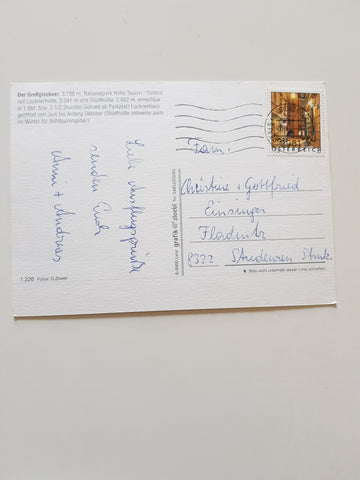 Der Großglockner, 3.798 m, Nationalpark Hohe Tauern / Osttirol
mit Lucknerhütte, 2.241 m und Stüdlhütte, 2.802 m, erreichbar
in 1 Std. bzw. 2 1/2 Stunden Gehzeit ab Parkplatz Lucknerhaus
geöffnet von Juni bis Anfang Oktober (Stüdlhütte zeitweise auch
im Winter für Schitourengeher)
Liebe Ausflugsgrüße
senden Euch
Anni + Andreas
1 226 Fotos: G.Zloebl
A-9900 Lienz grafik zloebl
ÖSTERREICH
Fam.
Christine + Gottfried
Einsinger
Fladnitz
8322 Studenzen Stmk.
▼ Bitte nicht unterhalb dieser Linie schreiben